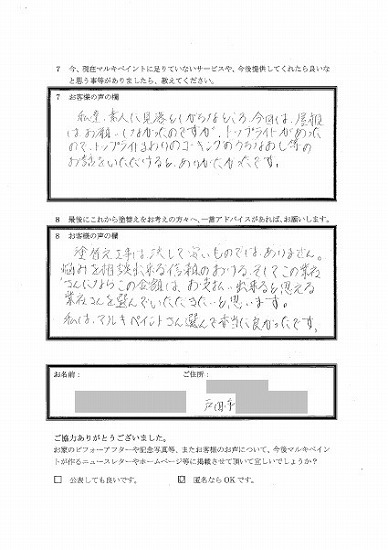 7 今、現在マルキペイントに足りていないサービスや、今後提供してくれたら良いな
と思う事等がありましたら、教えてください。
7 お客様の声の欄
私達、素人に見落としがちなところ、今回は、屋根
はお願いしなかったのですが、トップライトがあった
ので、トップライトまわりのコーキングのうちなおし等の
お話をいただけると、ありがたかったです。
8 最後にこれから塗替えをお考えの方々へ、一言アドバイスがあれば、お願いします。
8 お客様の声の欄
塗替え工事は、決して安いものではありません。
悩みを相談出来る信頼のおける、そしてこの業者
さんにならこの金額は、お支払い出来ると思える
業者さんを選んでいただきたいと思います。
私は、マルキペイントさん選んで本当に良かったです。
お名前: ご住所:
戸田市
ご協力ありがとうございました。
お家のビフォーアフターや記念写真等、またお客様のお声について、今後マルキペイン
トが作るニュースレターやホームページ等に掲載させて頂いて宜しいでしょうか?
□ 公表しても良いです。 ☑ 匿名ならOKです。